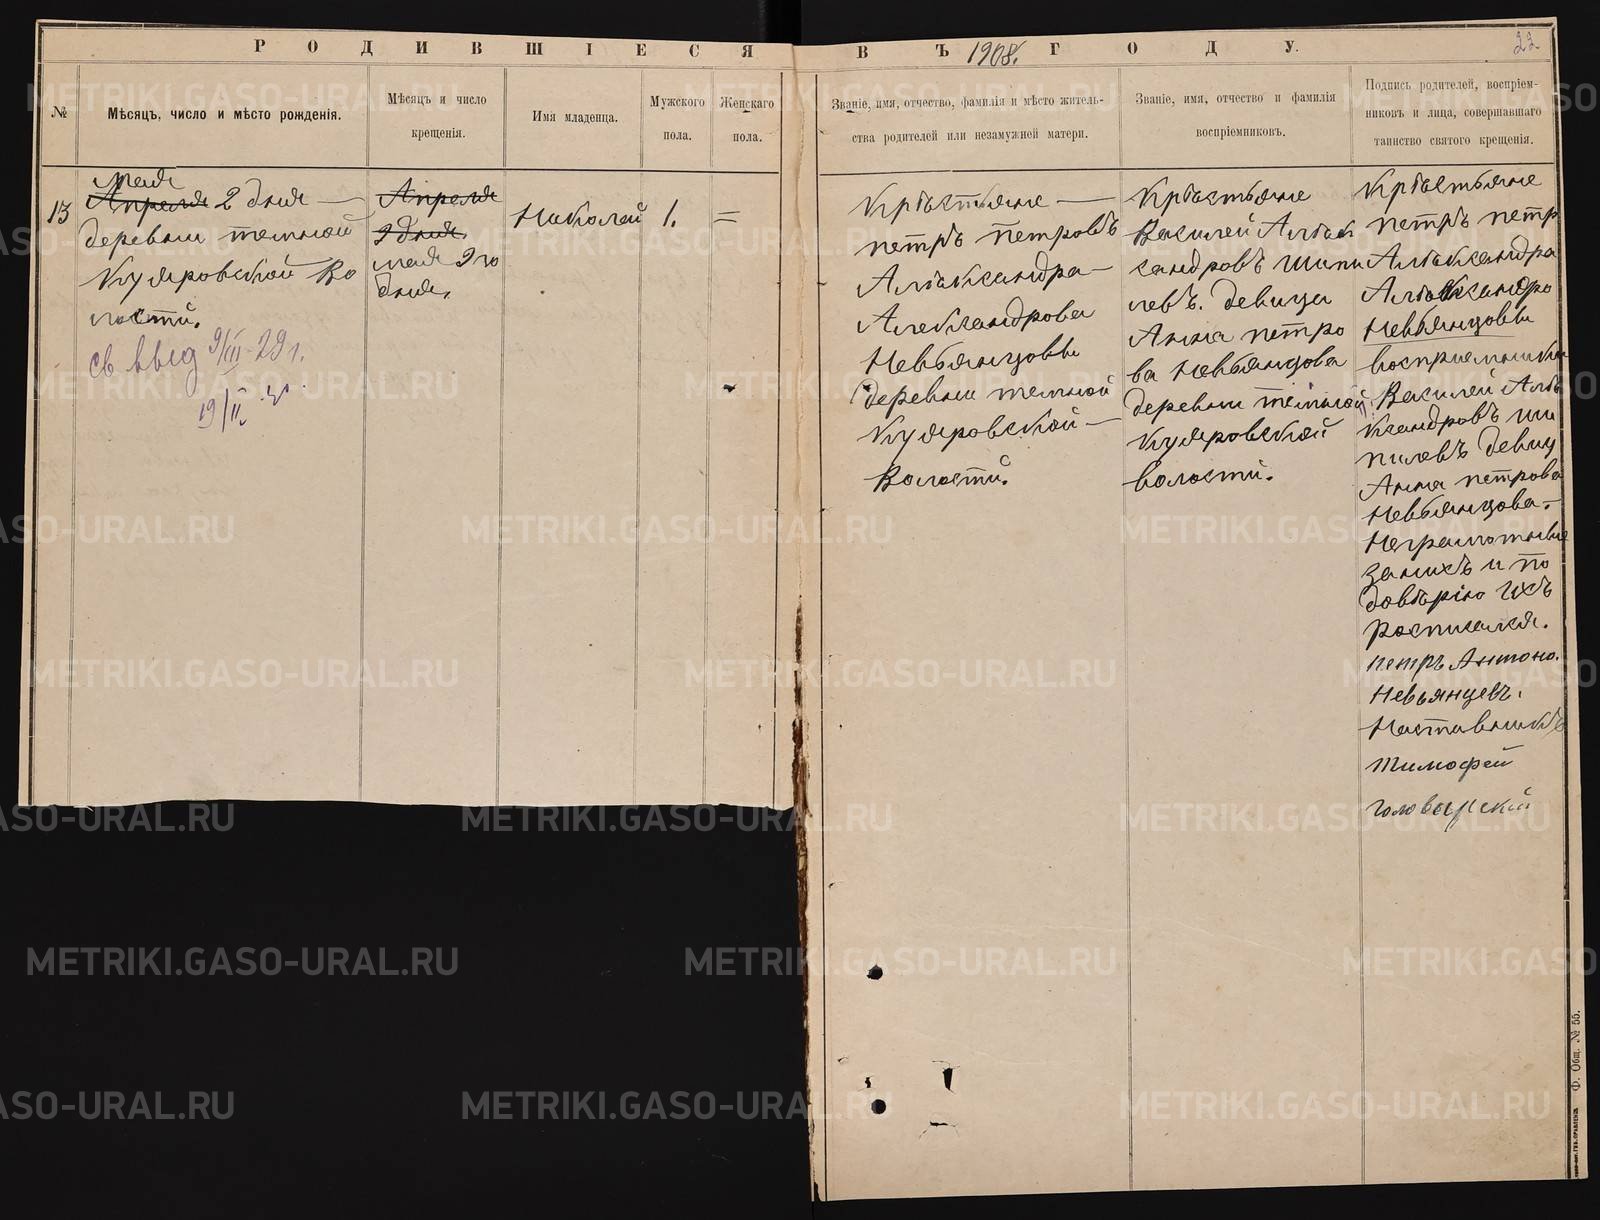 РОДИВШІЕСЯ ВЪ 1908. ГОДУ.
22.
№
Мѣсяцъ, число и мѣсто рожденія.
Мѣсяцъ и число
крещенія.
Имя младенца.
Мужского
пола.
Женскаго
пола.
Званіе, имя, отчество, фамилія и мѣсто житель-
ства родителей или незамужней матери.
Званіе, имя, отчество и фамилія
воспріемниковъ.
Подпись родителей, воспріем-
никовъ и лица, совершавшаго
таинство святого крещенія.
13
мая
Апреля 2 дня —
деревни темной
Куяровской Во
лости.
св выд 9/III-29 г.
19/II
Апреля
9 дня.
мая 9 го
дня.
Николай
1.
=
Крѣстьяне —
петръ петровъ
Алѣксандра —
Александрова
Невьянцовы
деревни темной
Куяровской —
Волости.
Крѣстьяне
Василей Алѣк
сандровъ шипи
левъ. девица
Анна петро
ва Невьянцова
деревни темной
Куяровской
волости.
Крѣстьяне
петръ петр
Алѣксандра
Алѣксандро
Невьянцовы
восприемники
Василей Алѣ
Ксандровъ ши
пилевъ девиц
Анна петрова
Невьянцова. —
Неграмотные
занихъ и по
довѣрію ихъ
росписался.
петръ Антоно.
Невьянцевъ.
Наставникъ
Тимофей
Ф. Общ. № 55.
METRIKI.GASO-URAL.RU